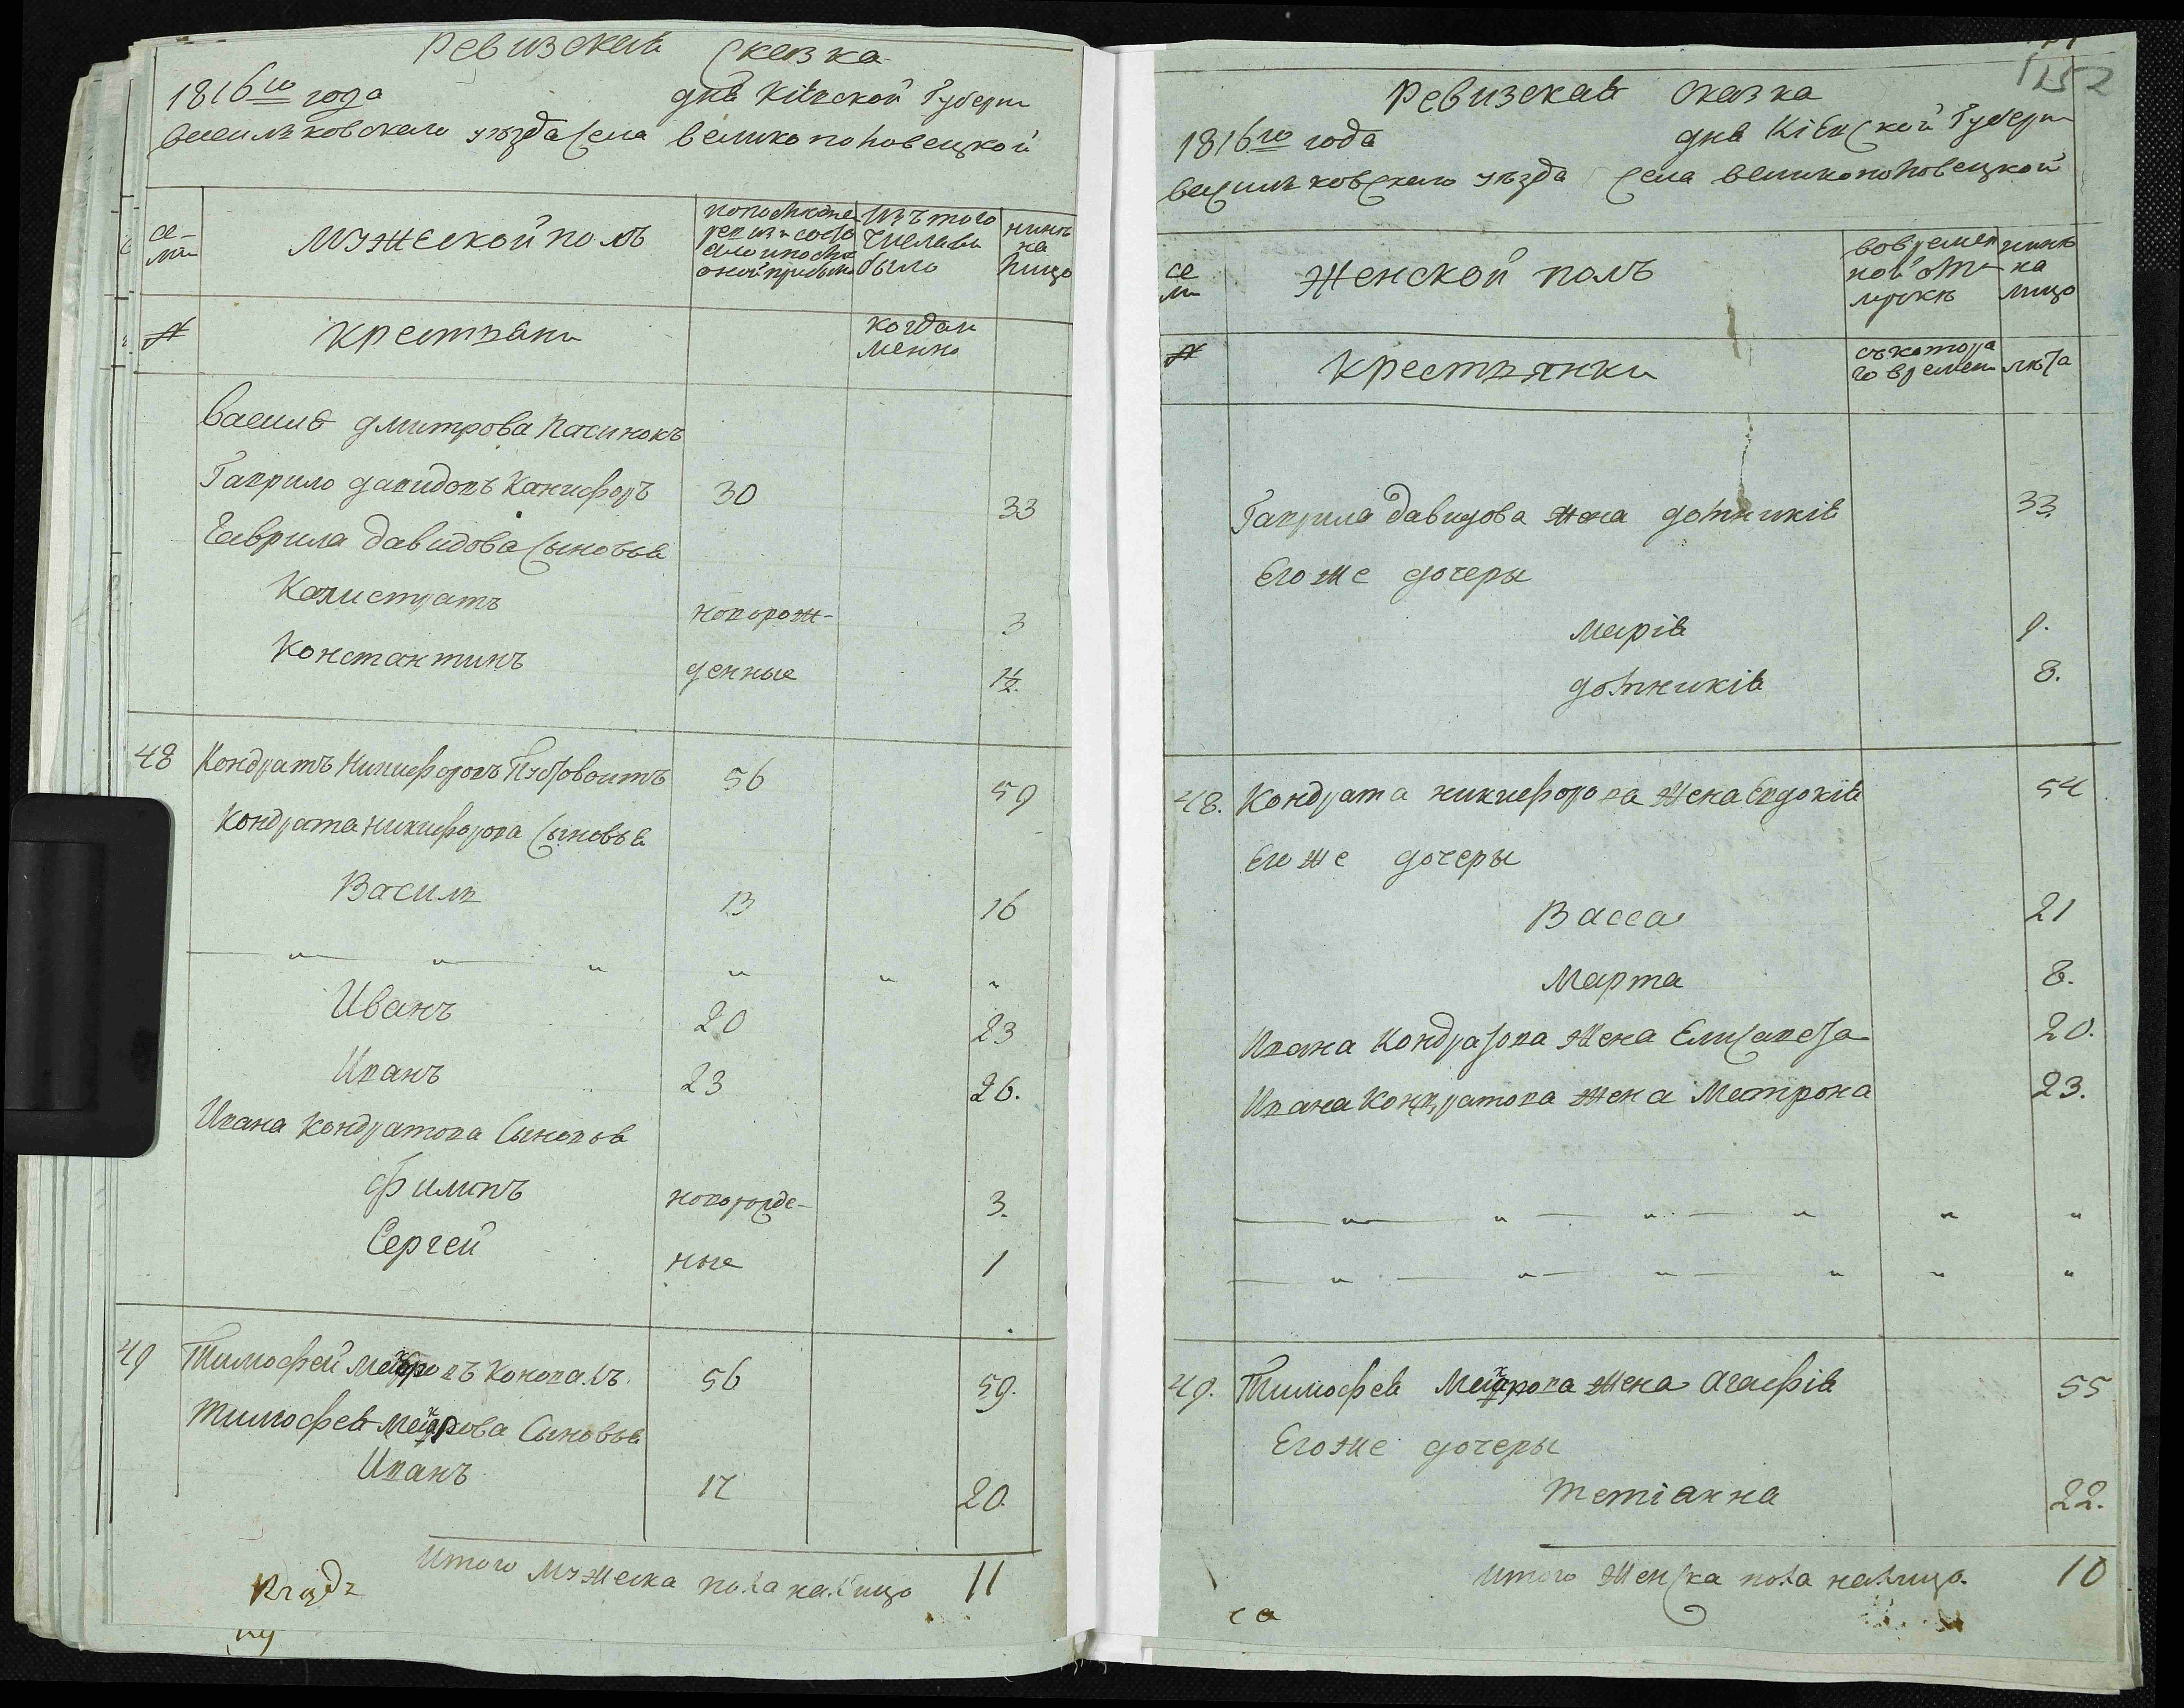 Ревизская Сказка
1816го года дня Кіевской Губерни
васильковскаго уѣзда села великополовецкой
се-
мьи
мужеской полъ
по последней
ревизіи состо
яло и после
оной прибыло
изъ того
числа вы
было
нинѣ
на
лицо
№
крестьяни
когда и
менно
василя дмитрова пасинокъ
Гаврило давидовъ Канифоръ 30 33
Гаврила давидова Сыновья
Калистратъ новорож- 3
Константинъ денные 1/2.
48 Кондратъ Никифоровъ 56 59
Кондрата никифорова Сыновья
Василь 13 16
" " " " " "
Иванъ 20 23
Иванъ 23 26.
Ивана кондратова Сыновья
Филипъ новорожде- 3.
Сергей ные 1
49 Тимофей Конова.лъ 56 59.
Тимофея Сыновья
Иванъ 17 20.
Итого мужеска пола налицо 11
152
Ревизская Сказка
1816го года дня Кіевской Губерни
васильковскаго уѣзда Села великополовецкой
се
ми
Женской полъ
во времен
ной отлучкѣ
нинѣ
на
лицо
№
крестьянки
съ котора
го времени
лѣта
Гаврила давидова жена домникія 33.
Его же дочеры
Марія 9.
домникія 8.
48. Кондрата никифорова жена Евдокія 54
Его же дочеры
Васса 21
Марта 8.
Ивана Кондратова жена Елисавета 20.
Ивана Кондратова жена Матрона 23.
" " " " " "
" " " " " "
49. Тимофея жена Агафія 55
Его же дочеры
тетіанна 22.
Итого женска пола налицо. 10
са